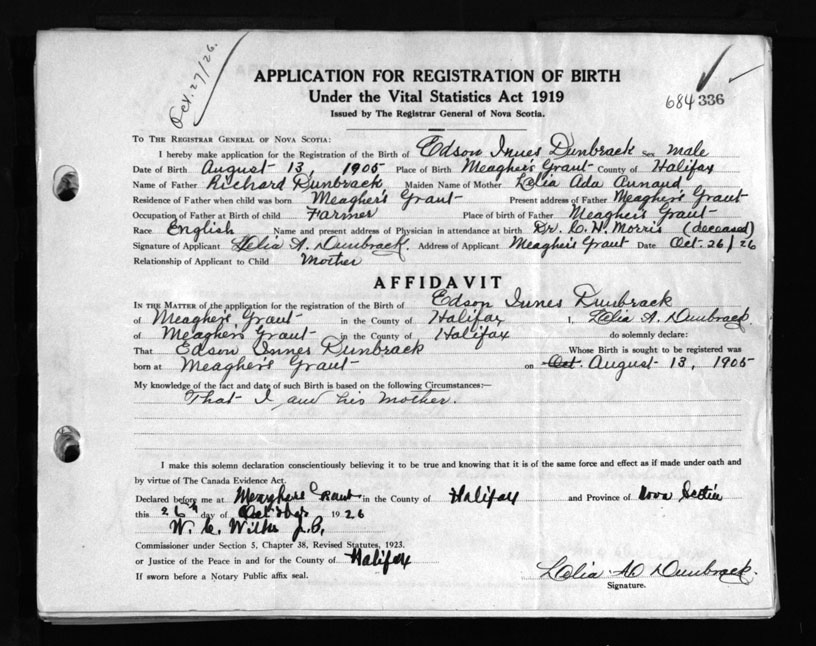 Oct. 27/26.
APPLICATION FOR REGISTRATION OF BIRTH
Under the Vital Statistics Act 1919
Issued by The Registrar General of Nova Scotia.
684 336
TO THE REGISTRAR GENERAL OF NOVA SCOTIA:
I hereby make application for the Registration of the Birth of Edson Innes Dunbrack Sex Male
Date of Birth August 13, 1905 Place of Birth Meagher's Grant County of Halifax
Name of Father Richard Dunbrack Maiden Name of Mother Lelia Ada
Residence of Father when child was born Meagher's Grant Present address of Father Meagher's Grant
Occupation of Father at Birth of child Farmer Place of birth of Father Meagher's Grant
Race English Name and present address of Physician in attendance at birth Dr. C. H. Morris (deceased)
Signature of Applicant Lelia A. Dunbrack. Address of Applicant Meagher's Grant Date Oct. 26/26
Relationship of Applicant to Child Mother
AFFIDAVIT
IN THE MATTER of the application for the registration of the Birth of Edson Innes Dunbrack
of Meagher's Grant in the County of Halifax I, Lelia A. Dunbrack
of Meagher's Grant in the County of Halifax do solemnly declare:
That Edson Innes Dunbrack Whose Birth is sought to be registered was
born at Meagher's Grant on Oct. August 13, 1905
My knowledge of the fact and date of such Birth is based on the following Circumstances:—
That I am his Mother.
I make this solemn declaration conscientiously believing it to be true and knowing that it is of the same force and effect as if made under oath and
by virtue of The Canada Evidence Act.
Declared before me at Meaghers Grant in the County of Halifax and Province of Nova Scotia
this 26th day of October 1926
W. C. J.P.
Commissioner under Section 5, Chapter 38, Revised Statutes, 1923.
or Justice of the Peace in and for the County of Halifax
If sworn before a Notary Public affix seal.
Lelia A. Dunbrack.
Signature.